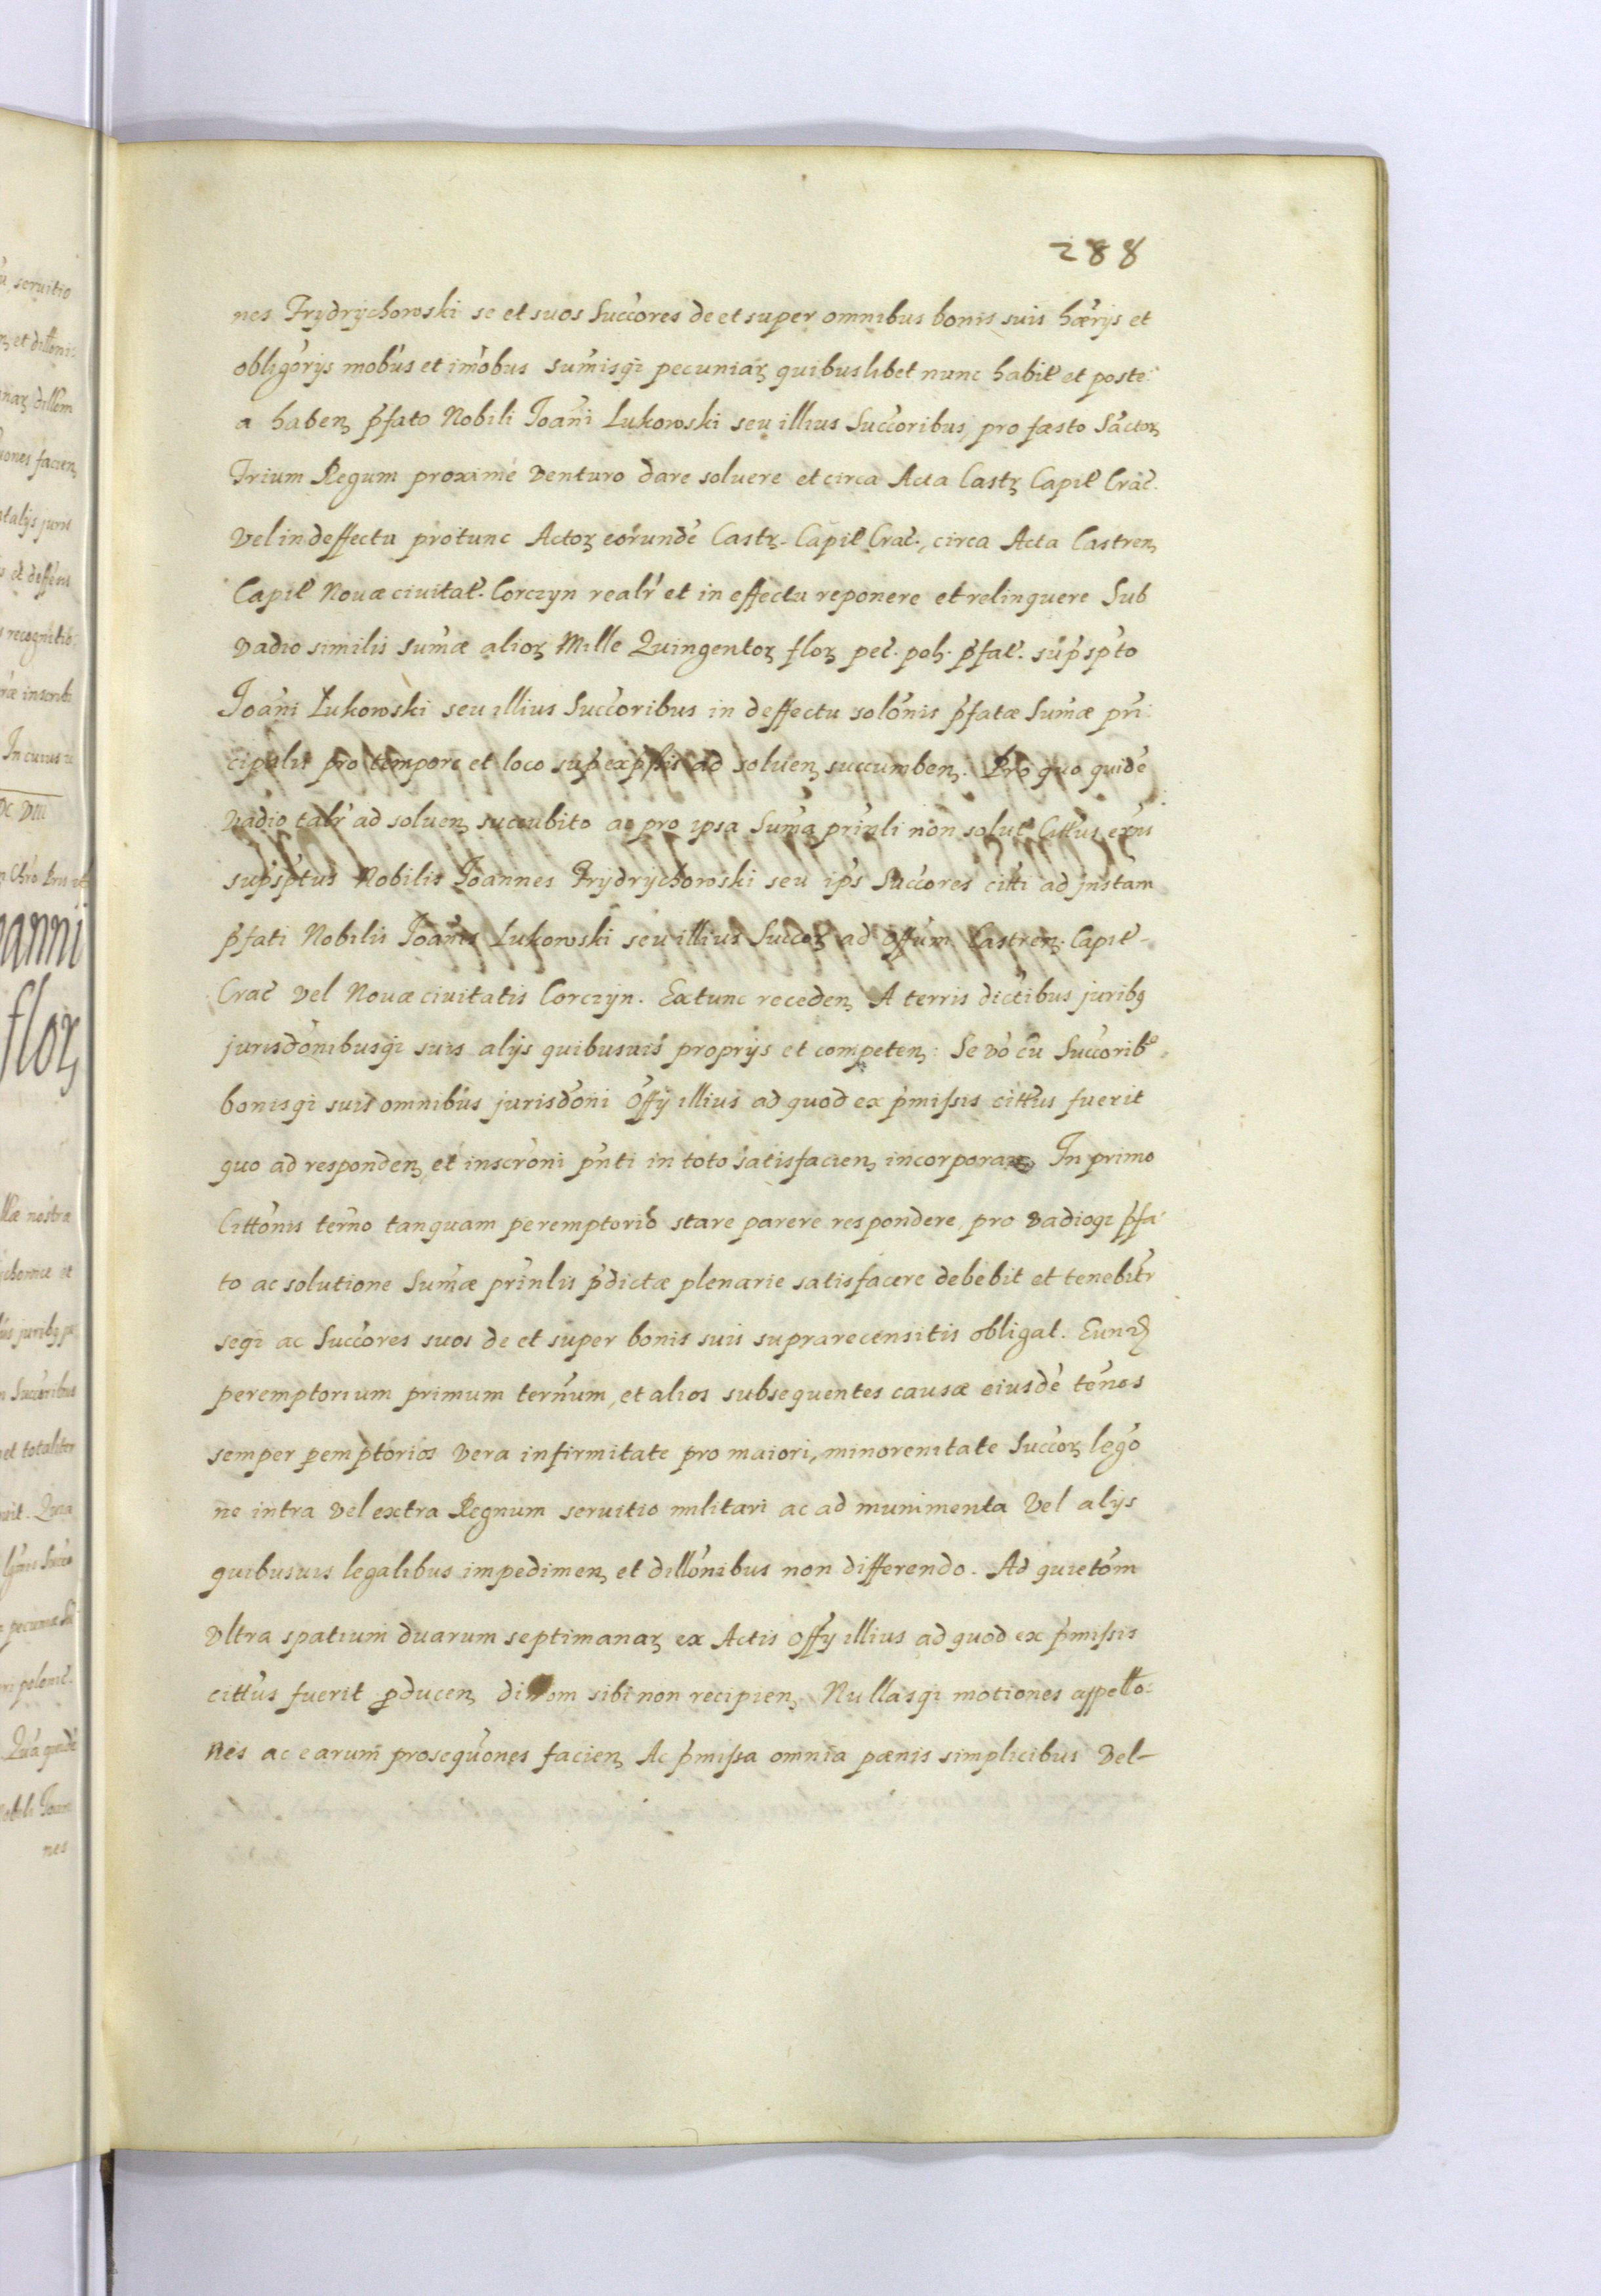 288
nes Frydrychowski se et suos Succ̃ores de et super omnibus bonis suis hær̃ijs et
obligor̃ijs mob̃us et im̃obus sum̃isqꝫ pecuniarꝫ quibuslibet nunc habit̃ et poste:
a habenꝫ p̃fato Nobili Joañi Lukowski seu illius Succ̃oribus, pro fæsto Sãctorꝫ
Trium Regum proximé venturo dare soluere et circa Acta Castrꝫ Capit̃ Crac̃.
Vel in deffectu protunc Actorꝫ eorunde᷃ Castrꝫ. Capit̃ Crac̃., circa Acta Castrenꝫ
Capit̃ Nouæ ciuitat̃. Corczyn realr̃ et in effectu reponere et relinquere Sub
vadio similis sum̃æ aliorꝫ Mille Quingentorꝫ florꝫ pec̃. poł. p̃fat̃. sup̃sp̃to
Joañi Łukowski seu illius Succ̃oribus in deffectu solõnis p̃fatæ Sum̃æ prĩ:
cipalis pro tempore et loco sup̃exp̃ssis ad soluenꝫ succumbenꝫ. Pro quo quide᷃
vadio talr̃ ad soluenꝫ succubito ac pro ipsa Sum̃a prinl̃i non solut̃ Citt̃us exñs
sup̃sp̃tus Nobilis Joannes Frydrychowski seu ips̃ Succ̃ores citt̃i ad jnstam̃
p̃fati Nobilis Joañis Lukowski seu illius Succ̃orꝫ ad off̃um Castrenꝫ. Capit̃-
Crac̃ vel Nouæ ciuitatis Corczyn. Ex tunc recedenꝫ A terris dict̃ibus juribꝫ
jurisdõnibusqꝫ suis alijs quibusuis proprijs et competenꝫ: Se vò cũ Succ̃orib̃
bonisqꝫ suis omnibus jurisdõni Off̃ij illius ad quod ex p̃missis citt̃us fuerit
quo ad respondenꝫ et inscrõni pñti in toto satisfacienꝫ incorporanꝫ In primo
Cittõnis term̃o tanquam peremptorio stare parere respondere, pro vadioqꝫ p̃fa:
to ac solutione Sum̃æ prinl̃is p̃dictæ plenarie satisfacere debebit et tenebit̃r
seqꝫ ac Succ̃ores suos de et super bonis suis suprarecensitis obligat. Eunꝫ
peremptorium primum term̃um, et alios subsequentes causæ eiusde᷃ tem̃os
semper pemptorios vera infirmitate pro maiori, minorenitate Succ̃orꝫ legõ
ne intra vel extra Regnum seruitio militari ac ad munimenta vel alijs
quibusuis legalibus impedimenꝫ et dill̃onibus non differendo. Ad quietõm
Vltra spatium duarum septimanarꝫ ex Actis off̃ij illius ad quod ex p̃missis
citt̃us fuerit ꝓducenꝫ sibi non recipienꝫ Nullasqꝫ motiones appell̃o:
nes ac earum prosequõnes facienꝫ Ac p̃missa omnia pænis simplicibus vel-